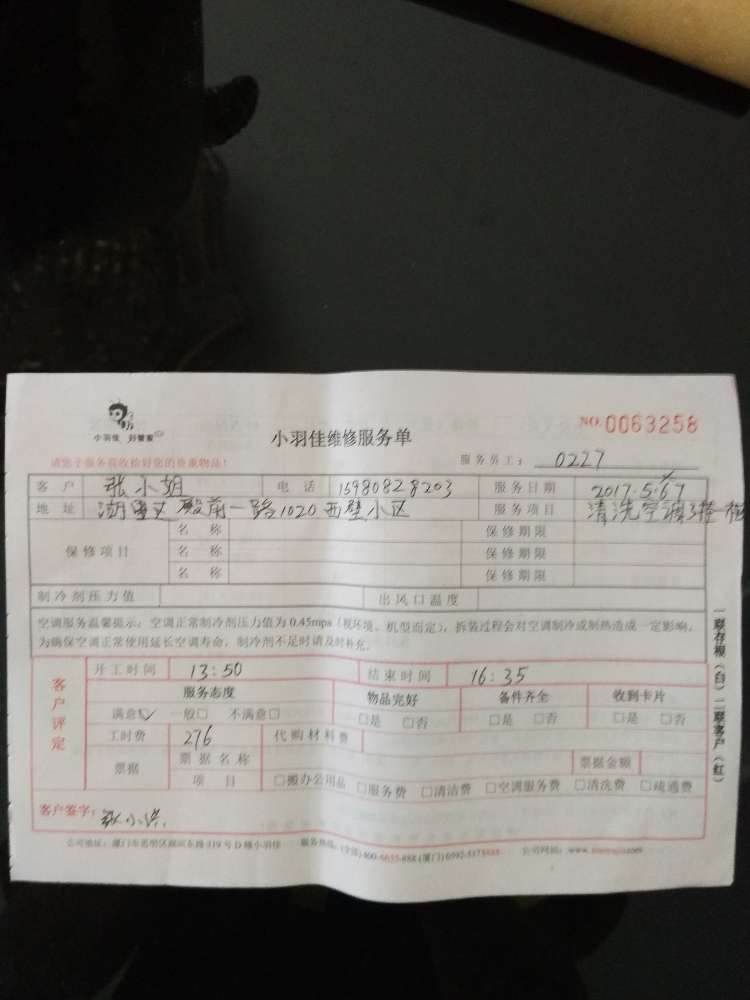 小羽佳 好管家
小羽佳维修服务单
NO.0063258
请您于服务前收拾好您的贵重物品!
服务员工: 0227
客户 张小姐 电话 15980828203 服务日期 2017.5.67
地址 湖里区殿前一路1020西璧小区 服务项目 清洗空调3挂一柜
保修项目 名称 保修期限
名称 保修期限
名称 保修期限
制冷剂压力值 出风口温度
空调服务温馨提示:空调正常制冷剂压力值为0.45mpa(视环境、机型而定),拆装过程会对空调制冷或制热造成一定影响,
为确保空调正常使用延长空调寿命,制冷剂不足时请及时补充。
客户评定
开工时间 13:50 结束时间 16:35
服务态度 物品完好 备件齐全 收到卡片
满意☑ 一般□ 不满意□ □是 □否 □是 □否 □是 □否
工时费 276 代购材料费
票据 票据名称 票据金额
项目 □搬办公用品 □服务费 □清洁费 □空调服务费 □清洗费 □疏通费
客户签字: 张小
公司地址:厦门市思明区 319号D幢小羽佳 服务热线:(全国)400-6655-888(厦门)0592-5178888 公司网站:www.
一联存根(白)二联客户(红)